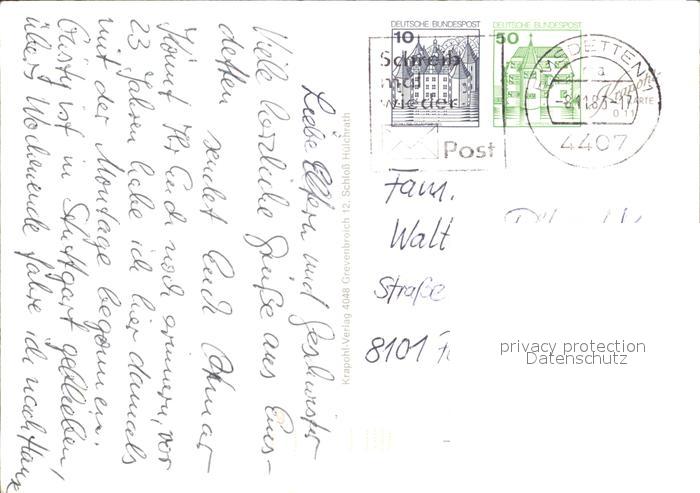 Liebe Eltern und Geschwister
Viele herzliche Grüße aus Ems-
detten sendet Euch Otmar
Könnt Ihr Euch noch erinnern, vor
23 Jahren habe ich hier damals
mit der Montage begonnen.
Gusty ist in Stuttgart geblieben,
übers Wochenende fahre ich nach Haus
Krapohl-Verlag 4048 Grevenbroich 12, Schloß Hülchrath
DEUTSCHE BUNDESPOST
10
DEUTSCHE BUNDESPOST
50
Schreib
mal
wieder
Post
EMSDETTEN
a
-8.11.83-17
4407
Krapohl
KARTE
Fam.
Walt
Straße
8101
privacy protection
Datenschutz